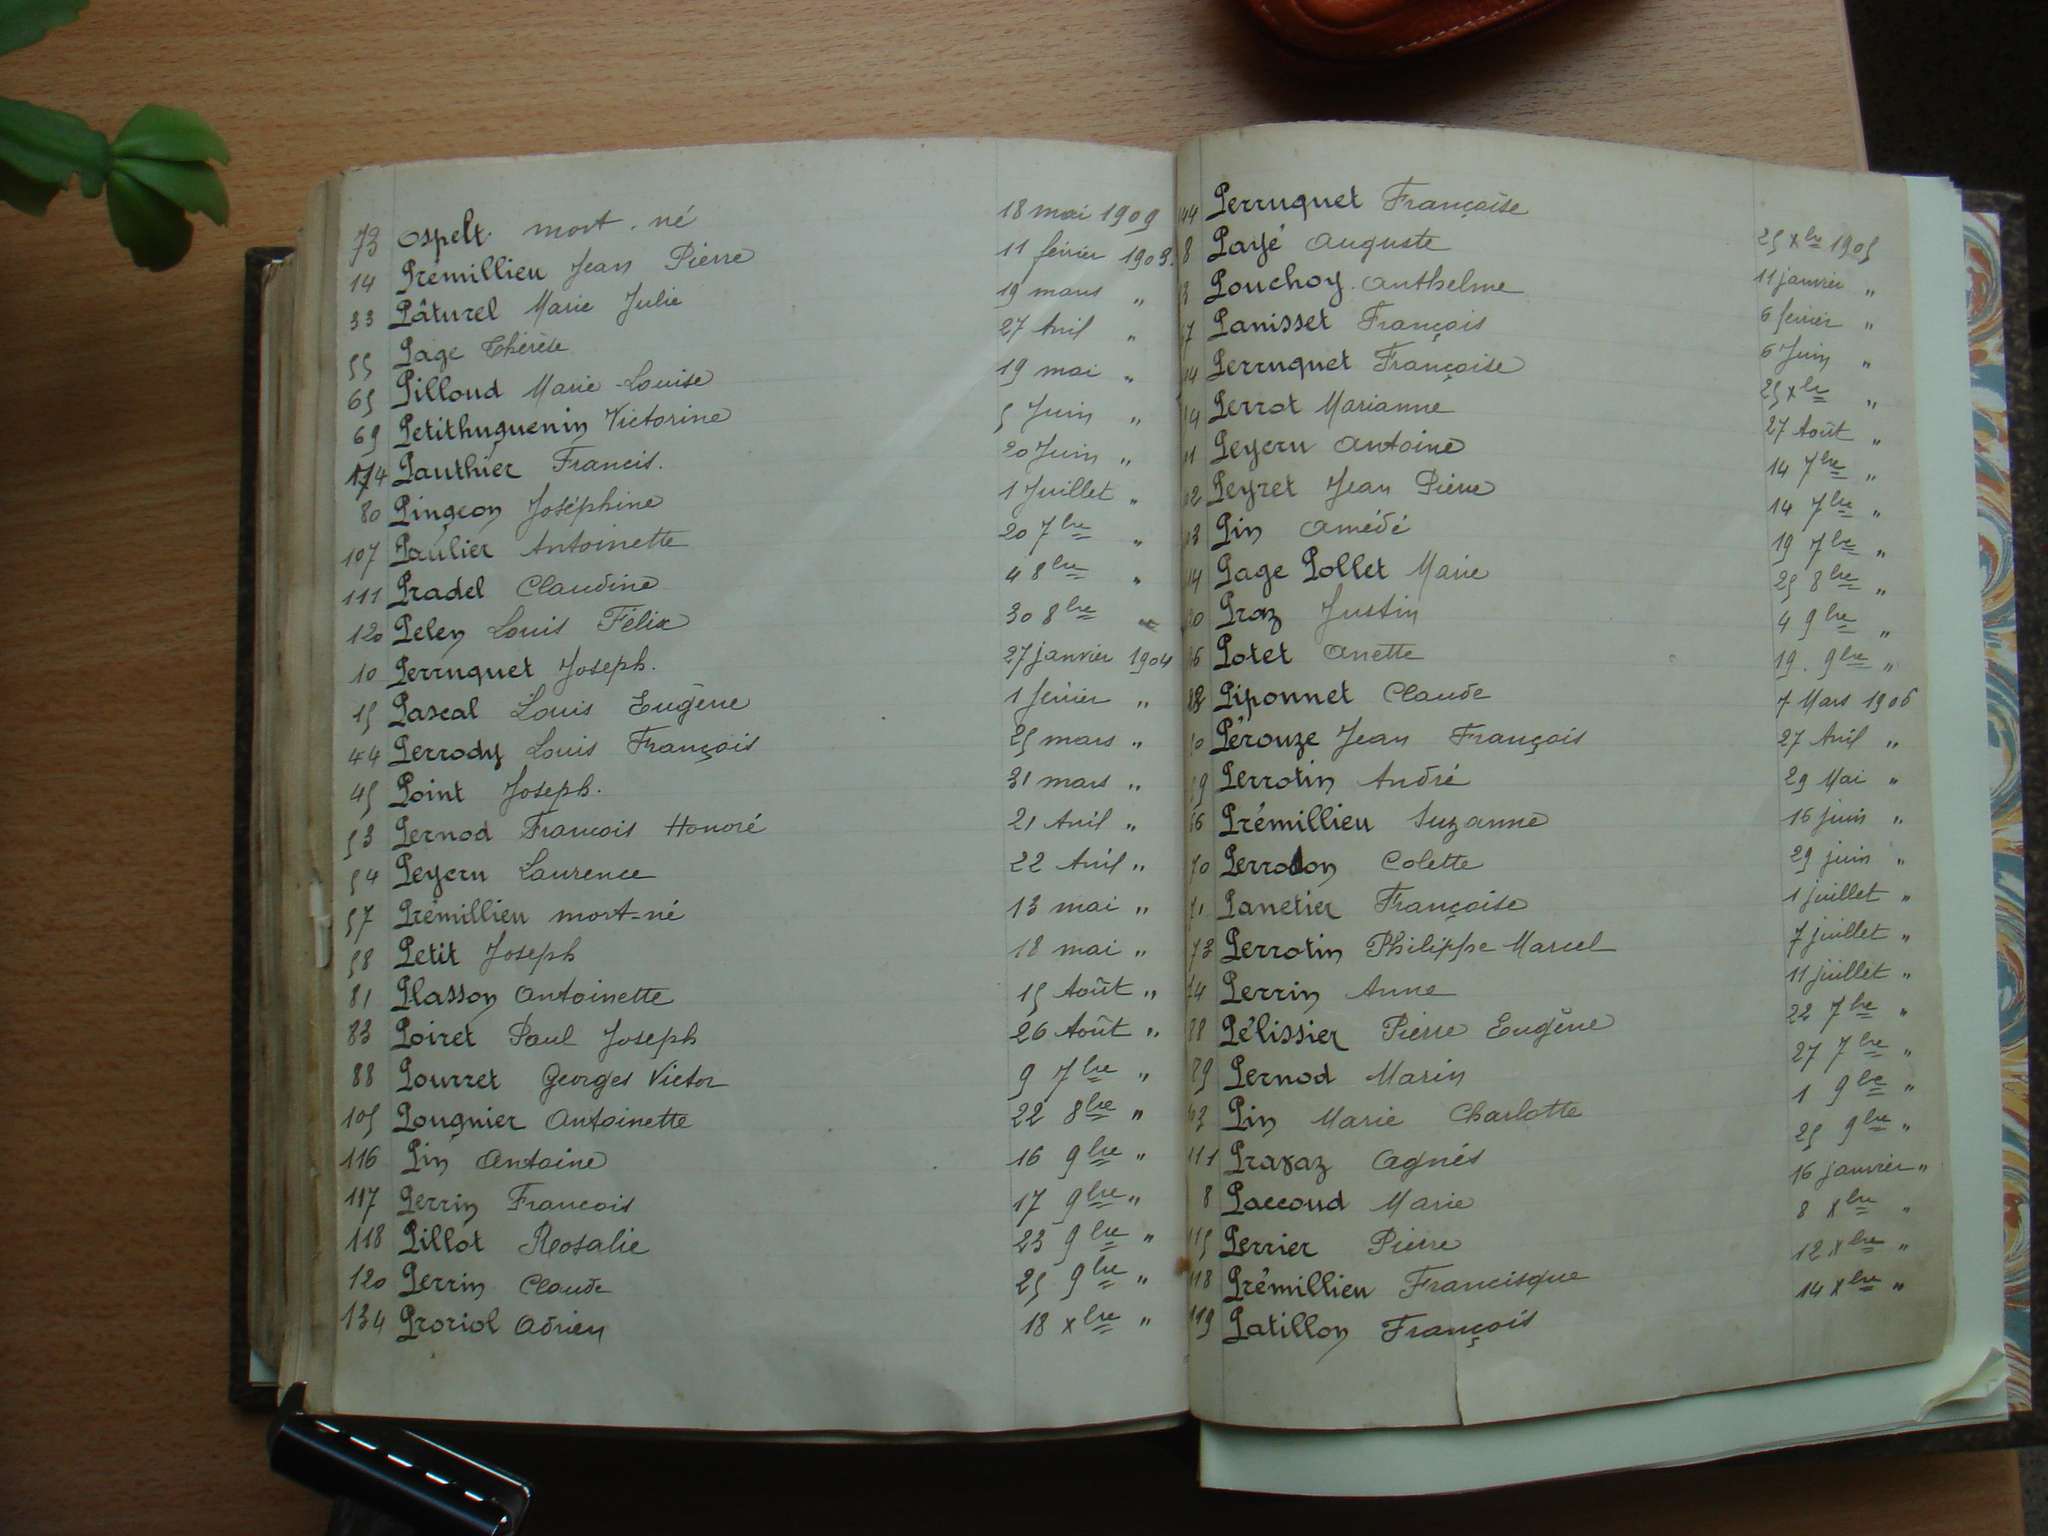 73 Ospelt mort-né 18 mai 1909
14 Prémillieu Jean Pierre 11 février 1903.
33 Pâturel Marie Julie 19 mars "
55 Page Thérèse 27 Avril "
65 Pilloud Marie-Louise 19 mai "
69 Petithuguenin Victorine 5 Juin "
74 Pauthier Francis. 20 Juin "
80 Pingeon Joséphine 1 Juillet "
107 Paulier Antoinette 20 7bre "
111 Pradel Claudine 4 8bre "
120 Pelen Louis Félix 30 8bre "
10 Perruquet Joseph. 27 janvier 1904
15 Pascal Louis Eugène 1 février "
44 Perrody Louis François 25 mars "
45 Point Joseph. 31 mars "
53 Pernod Francois Honoré 21 Avril "
54 Peyeru Laurence 22 Avril "
57 Prémillieu mort-né 13 mai "
58 Petit Joseph 18 mai "
81 Plasson Antoinette 15 Août "
83 Poiret Paul Joseph 26 Août "
88 Pourret Georges Victor 9 7bre "
105 Pougnier Antoinette 22 8bre "
116 Pin Antoine 16 9bre "
117 Perrin Francois 17 9bre "
118 Pillot Rosalie 23 9bre "
120 Perrin Claude 25 9bre "
134 Proriol Adrien 18 xbre "
Perruquet Françoise 25 xbre 1905
8 Payé Auguste 11 janvier "
Pouchoy Anthelme 6 février "
Panisset François 6 Juin "
Perruquet Françoise 25 xbre "
Perrot Marianne 27 Août "
Peyeru Antoine 14 7bre "
Peyret Jean Pierre 14 7bre "
Pin Amédé 19 7bre "
Page Pollet Marie 25 8bre "
Praz Justin 4 9bre "
Potet Anette 19. 9bre "
Piponnet Claude 7 Mars 1906
Pérouze Jean François 27 Avril "
Perrotin André 29 Mai "
Prémillieu Suzanne 16 juin "
70 Perrodon Colette 29 juin "
Panetier Françoise 1 juillet "
73 Perrotin Philippe Marcel 7 juillet "
74 Perrin Anne 11 juillet "
88 Pélissier Pierre Eugène 22 7bre "
89 Pernod Marin 27 7bre "
Pin Marie Charlotte 1 9bre "
111 Pravaz Agnés 25 9bre "
8 Paccoud Marie 16 janvier "
115 Perrier Pierre 8 xbre "
118 Prémillieu Francisque 12 xbre "
119 Patillon François 14 xbre "